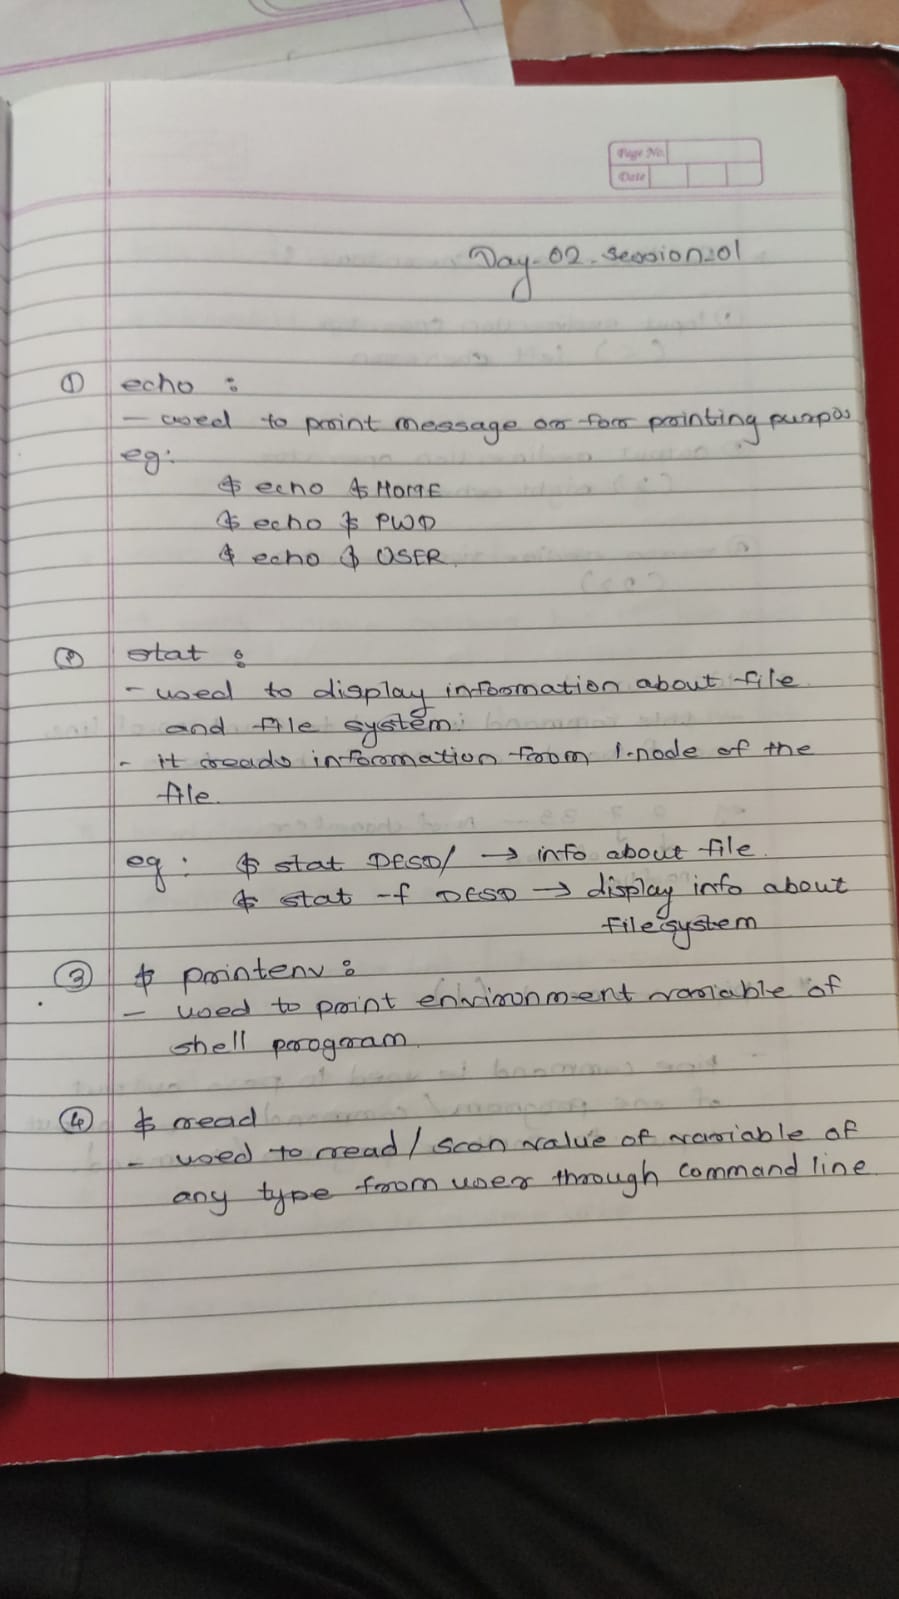 Page No.
Date
Day-02-session:01
① echo :
- used to print message or for printing purpos
eg:
$ echo $HOME
$ echo $ PWD
$ echo $ USER
② stat :
- used to display information about file
and file system.
- it reads information from I-node of the
file.
eg : $ stat DESD/ → info about file.
$ stat -f DESD → display info about
filesystem
③ $ printenv :
- used to print environment variable of
shell program.
④ $ read
- used to read / scan value of variable of
any type from user through command line.